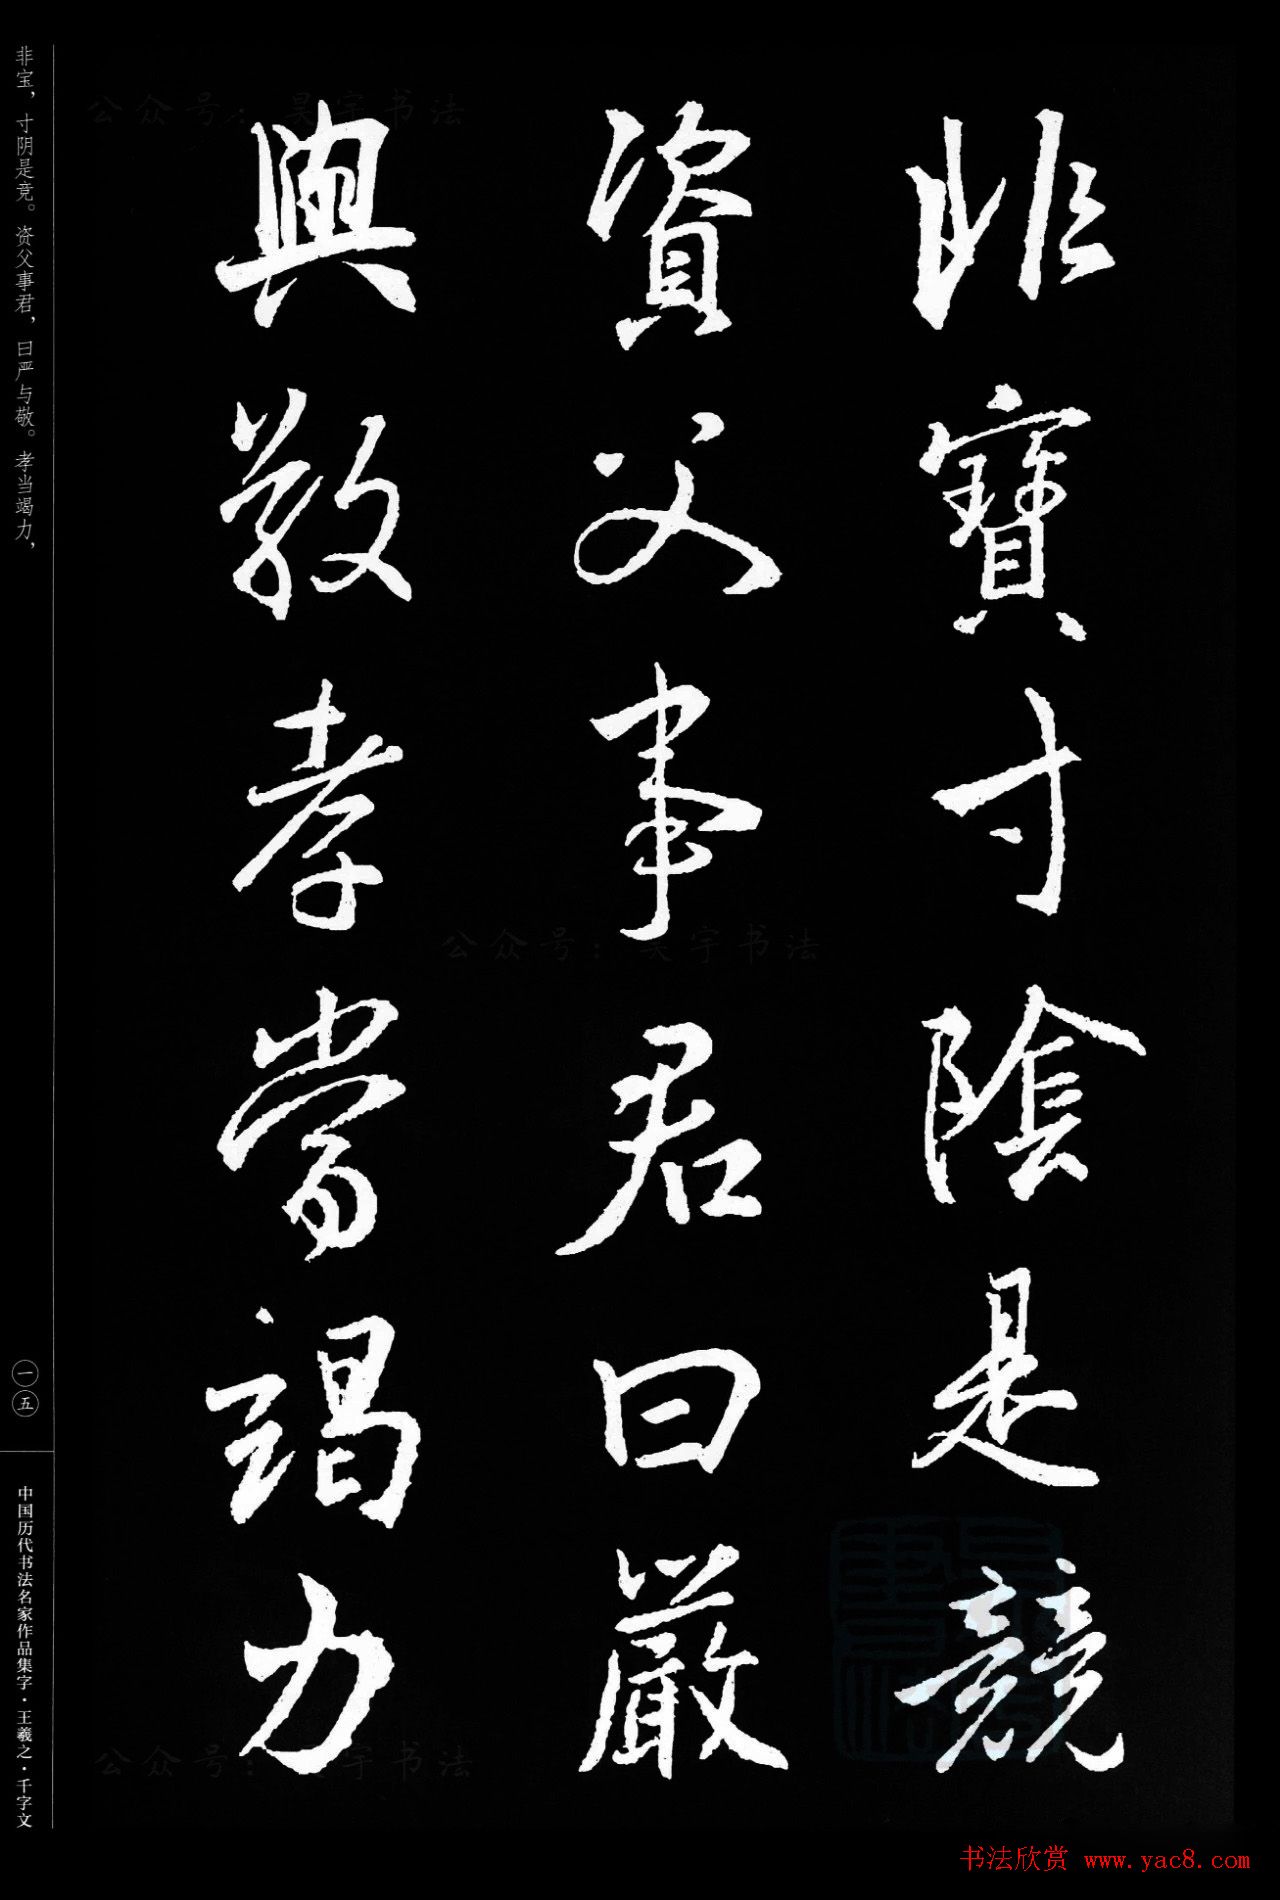 非寶寸陰是競
資父事君曰嚴
與敬孝當竭力
非宝，寸阴是竞。资父事君，曰严与敬。孝当竭力，
一五
中国历代书法名家作品集字·王羲之·千字文
公众号：昊宇书法
公众号：昊宇书法
公众号：昊宇书法
书法欣赏 www.yac8.com